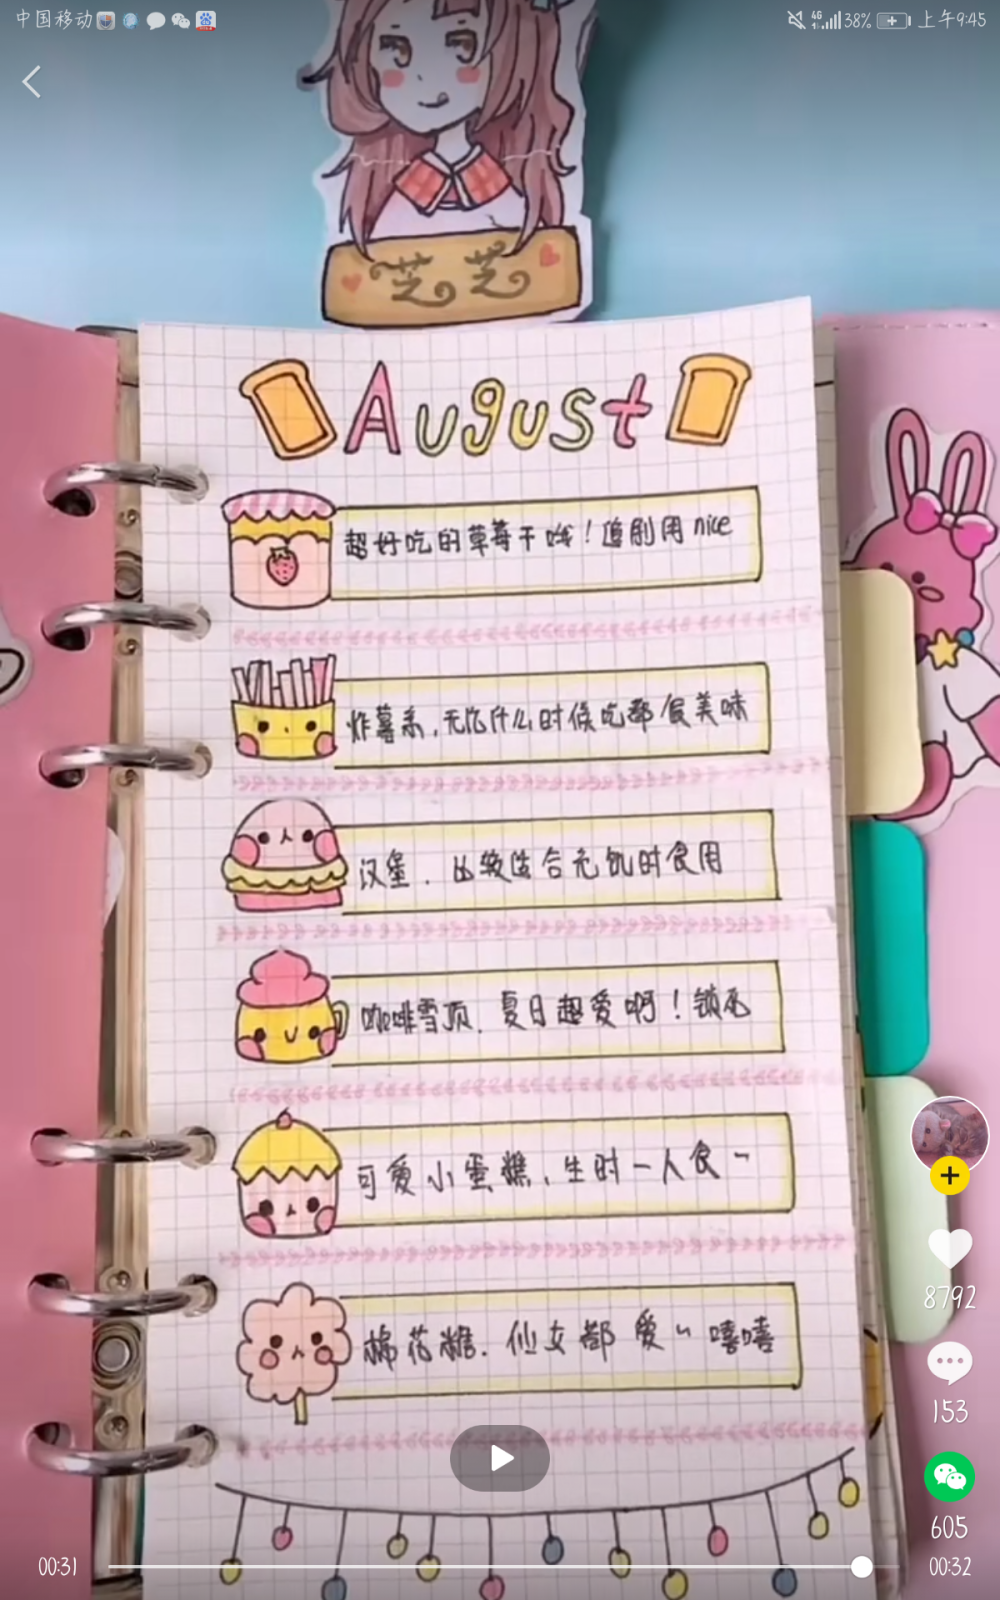 中国移动
4G
38%
上午9:45
芝芝
August
超好吃的草莓干哦！追剧用nice
炸薯条,无论什么时候吃都很美味
汉堡.比较适合充饥时食用
咖啡雪顶.夏日超爱啊！锁死
可爱小蛋糕、生时一人食~
棉花糖.仙女都爱~嘻嘻
8792
153
605
00:31
00:32